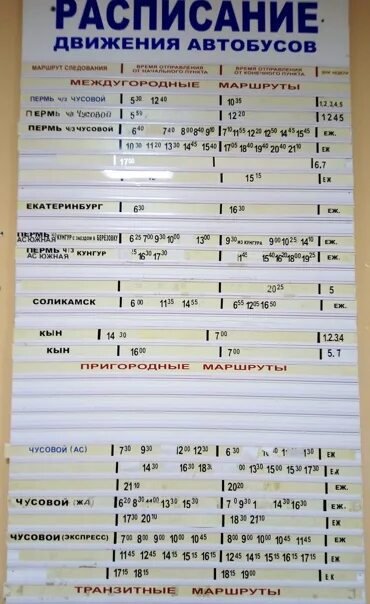 РАСПИСАНИЕ
ДВИЖЕНИЯ АВТОБУСОВ
МАРШРУТ СЛЕДОВАНИЯ ВРЕМЯ ОТПРАВЛЕНИЯ ОТ НАЧАЛЬНОГО ПУНКТА ВРЕМЯ ОТПРАВЛЕНИЯ ОТ КОНЕЧНОГО ПУНКТА ДНИ НЕДЕЛИ
МЕЖДУГОРОДНЫЕ МАРШРУТЫ
ПЕРМЬ ч/з ЧУСОВОЙ 5 30 12 40 10 35 1,2,3,4,5
ПЕРМЬ ЧУСОВОЙ 5 50 12 20 1 2 4 5
ПЕРМЬ ЧЗ ЧУСОВОЙ 6 40 7 40 8 00 8 40 9 10 7 10 11 55 12 20 12 50 14 45 15 45 ЕЖ.
10 30 11 20 13 30 14 45 15 40 17 05 18 40 19 40 20 40 21 10 ЕЖ
17 00 6.7
15 15 ЕЖ
ЕКАТЕРИНБУРГ 6 30 16 30 ЕЖ.
ПЕРМЬ АС ЮЖНАЯ КУНГУР с заездом в БЕРЕЗОВКУ 6 25 7 00 9 30 10 00 13 00 9 30 ИЗ КУНГУРА 9 00 10 25 14 10 ЕЖ.
ПЕРМЬ АС ЮЖНАЯ КУНГУР 16 30 17 30 15 40 16 20 18 00 19 25 ЕЖ.
20 25 5
СОЛИКАМСК 6 00 11 35 14 55 6 55 12 05 16 50 ЕЖ.
КЫН 14 30 7 00 1.2.3.4
КЫН 16 00 7 00 5. 7
ПРИГОРОДНЫЕ МАРШРУТЫ
ЧУСОВОЙ (АС) 7 30 9 30 12 00 12 30 6 30 ЕЖ
14 30 16 30 18 30 13 30 15 00 15 30 17 30 ЕЖ
21 10 20 20 ЕЖ.
ЧУСОВОЙ (ЖА) 6 20 8 30 11 00 13 30 15 30 7 0 9 30 14 30 16 30 ЕЖ.
17 30 20 10 18 30 21 10 ЕЖ.
ЧУСОВОЙ (ЭКСПРЕСС) 7 00 8 00 9 00 10 00 10 45 8 00 9 00 10 00 10 45 11 45 ЕЖ.
11 45 12 45 14 15 15 15 16 15 12 45 14 15 15 15 16 15 17 15 ЕЖ
17 15 18 15 18 15 19 00 Е.К
ТРАНЗИТНЫЕ МАРШРУТЫ